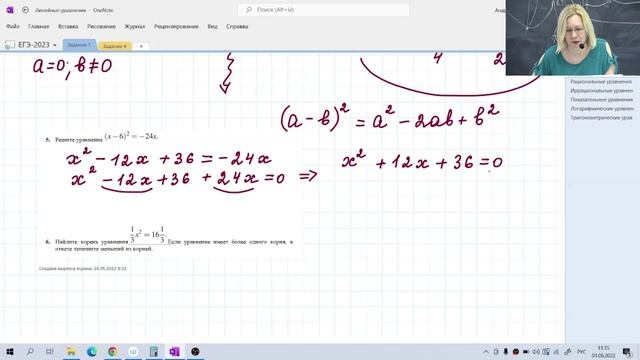 Линейные уравнения - OneNote
Поиск (Alt+Ы)
Файл Главная Вставка Рисование История Рецензирование Вид Справка
ЕГЭ-2023
Задание 1
Задание 4
a=0; b≠0
4 2
(a-b)² = a² - 2ab + b²
5. Решите уравнение (x−6)² = −24x.
x² - 12x + 36 = -24x
x² + 12x + 36 = 0
x² - 12x + 36 + 24x = 0 ⇒
6. Найдите корень уравнения 1/3 x² = 16 1/3. Если уравнение имеет более одного корня, в
ответе запишите меньший из корней.
Создана вырезка экрана: 14.05.2022 8:32
Рациональные уравнения
Иррациональные уравнен
Показательные уравнения
Логарифмические уравнен
Тригонометрические урав
РУС
11:15
01.06.2022